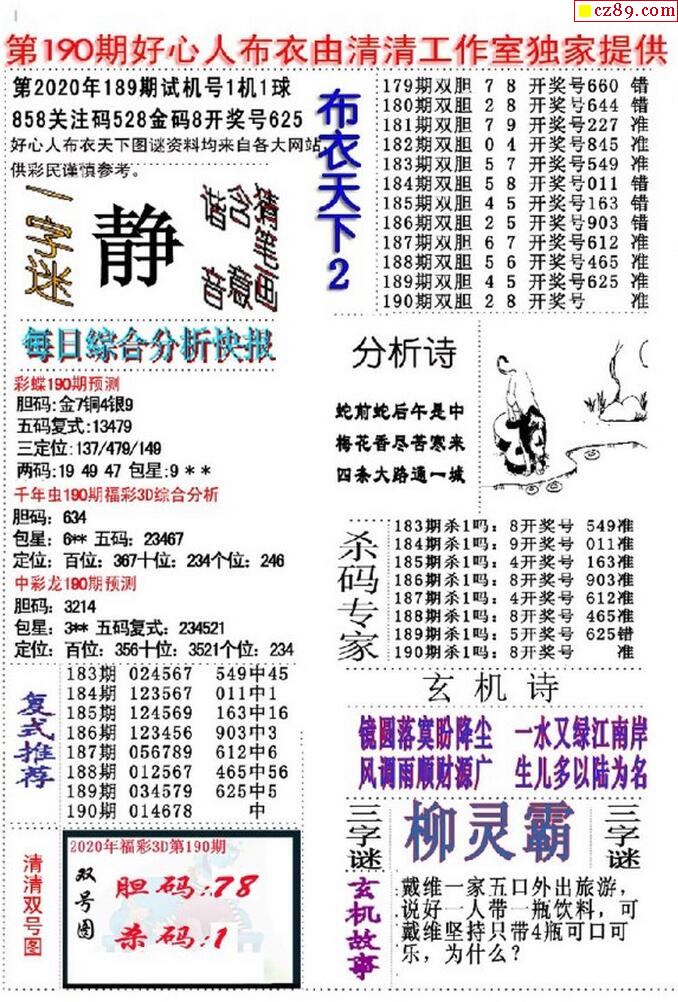 cz89.com
第190期好心人布衣由清清工作室独家提供
第2020年189期试机号1机1球
858关注码528金码8开奖号625
好心人布衣天下图谜资料均来自各大网站,
供彩民谨慎参考。
一字迷
静
猜笔画
含意
谐音
每日综合分析快报
彩蝶190期预测
胆码:金7铜4银9
五码复式:13479
三定位:137/479/149
两码:19 49 47 包星:9 * *
千年虫190期福彩3D综合分析
胆码: 634
包星: 6** 五码: 23467
定位: 百位: 367十位: 234个位: 246
中彩龙190期预测
胆码: 3214
包星: 3** 五码复式: 234521
定位: 百位: 356十位: 3521个位: 234
复式推荐
183期 024567 549中45
184期 123567 011中1
185期 124569 163中16
186期 123456 903中3
187期 056789 612中6
188期 012567 465中56
189期 034579 625中5
190期 014678 中
清清双号图
2020年福彩3D第190期
双号图
胆码:78
杀码:1
布衣天下2
179期双胆 7 8 开奖号660 错
180期双胆 2 8 开奖号644 错
181期双胆 7 9 开奖号227 准
182期双胆 0 4 开奖号845 准
183期双胆 5 7 开奖号549 准
184期双胆 5 8 开奖号011 错
185期双胆 4 5 开奖号163 错
186期双胆 2 5 开奖号903 错
187期双胆 6 7 开奖号612 准
188期双胆 5 6 开奖号465 准
189期双胆 4 5 开奖号625 准
190期双胆 2 8 开奖号 准
分析诗
蛇前蛇后午是中
梅花香尽苦寒来
四条大路通一城
杀码专家
183期杀1吗: 8开奖号 549准
184期杀1吗: 9开奖号 011准
185期杀1吗: 4开奖号 163准
186期杀1吗: 8开奖号 903准
187期杀1吗: 4开奖号 612准
188期杀1吗: 8开奖号 465准
189期杀1吗: 5开奖号 625错
190期杀1吗: 8开奖号 准
玄机诗
镜圆落寞盼降尘 一水又绿江南岸
风调雨顺财源广 生儿多以陆为名
三字谜
柳灵霸
三字谜
玄机故事
戴维一家五口外出旅游,
说好一人带一瓶饮料, 可
戴维坚持只带4瓶可口可
乐, 为什么?